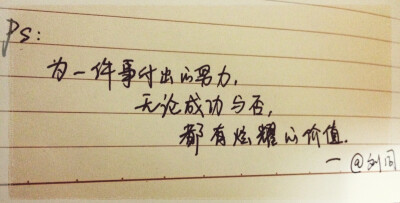 Ps:
为一件事付出的努力,
无论成功与否,
都有炫耀的价值.
— @刘同